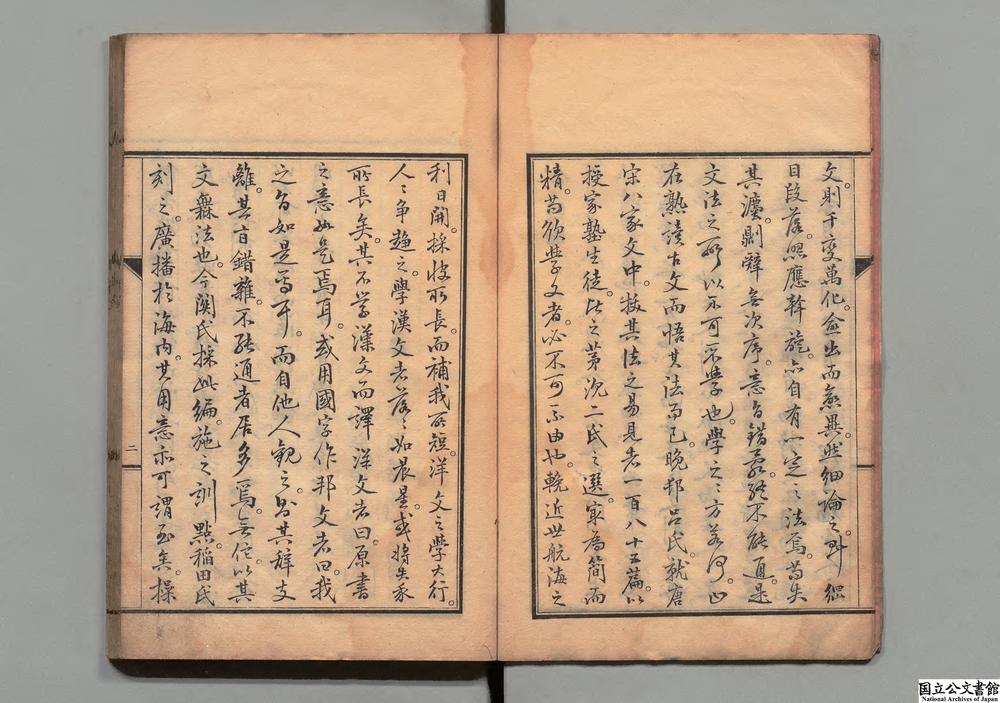 文。則千變萬化。愈出而愈異。然細論之。則綱
目段落。照應幹旋。亦自有一定之法焉。苟失
其法。則辭無次序。意旨錯亂。終不能通。是
文法之所以不可不學也。學之之方若何。曰
在熟讀古文而悟其法而已。晚邨呂氏。就唐
宋八家文中。拔其法之易見者一百八十五篇。以
授家塾生徒。比之茅沈二氏之選。最為簡而
精。苟欲學文者。必不可不由也。輓近世航海之
利日開。採彼所長。而補我所短。洋文之學大行。
人々爭趨之。學漢文者。落々如晨星。或將失我
所長矣。其不學漢文而譯洋文者曰。原書
之意如是焉耳。或用國字作邦文者曰。我
之旨如是焉耳。而自他人觀之。則其辭支
離。其旨錯雜。不能通者居多焉。無他。以其
文無法也。今関氏採此編。施之訓點。稲田氏
刻之。廣播於海内。其用意亦可謂至矣。操
二
国立公文書館
National Archives of Japan